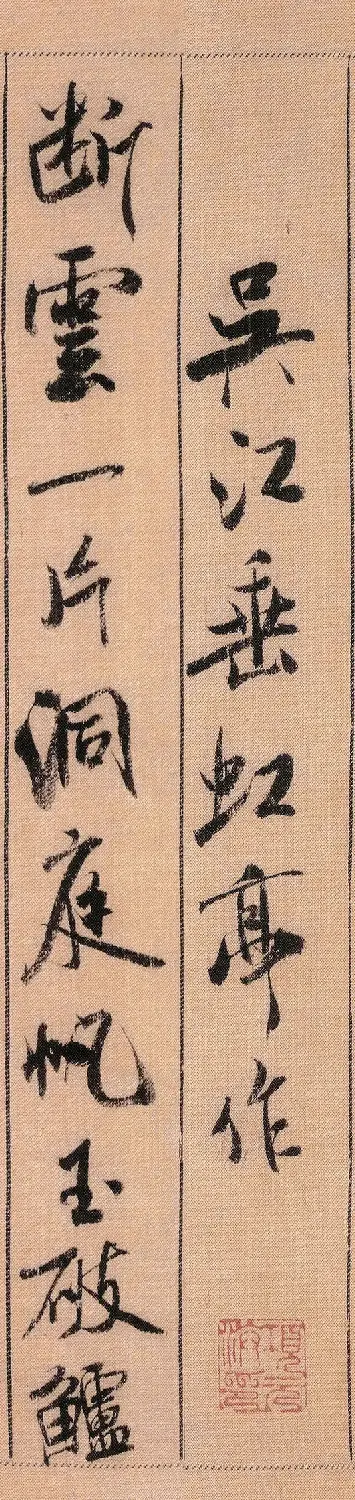 吳江垂虹亭作
断雲一片洞庭帆玉破鱸